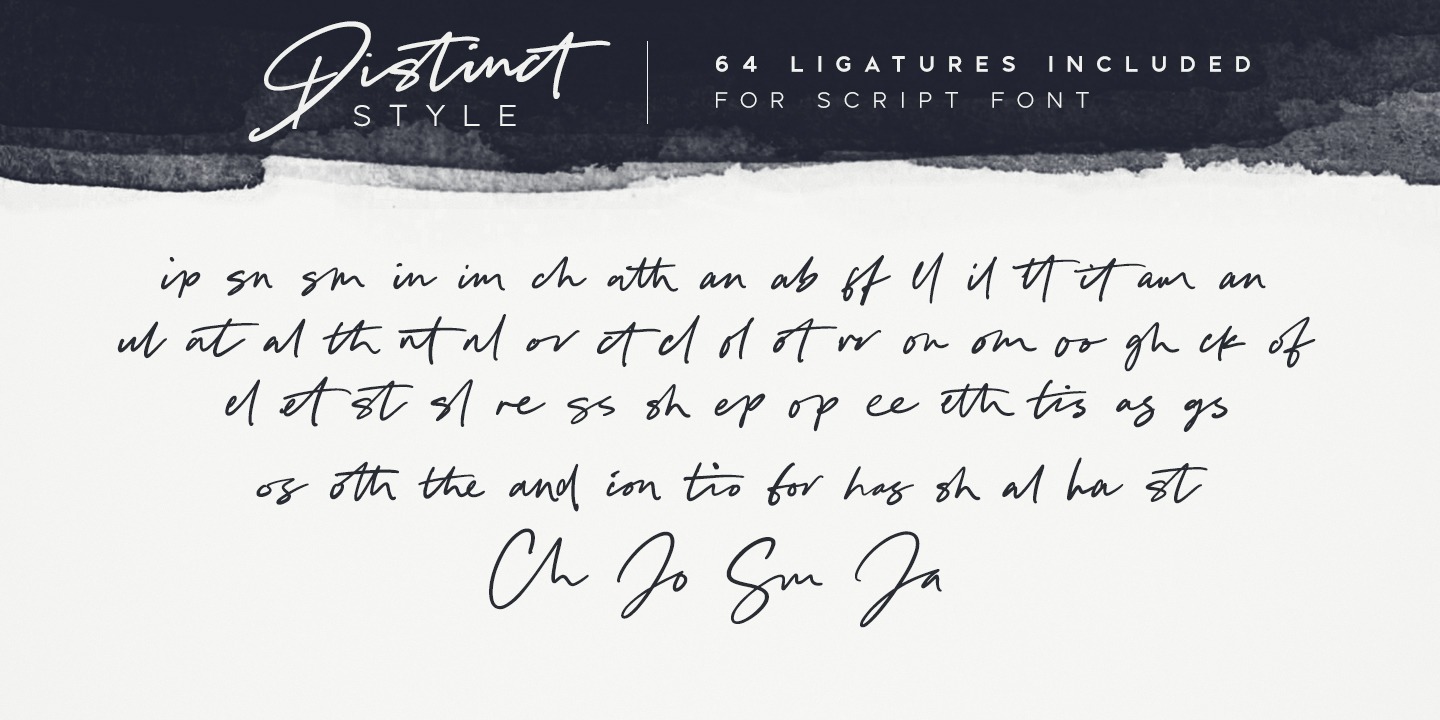 Distinct
STYLE
64 LIGATURES INCLUDED
FOR SCRIPT FONT
ip sn sm in im ch ath an ab ff ll il tt it am an
ul at al th nt nl or ct cl ol ot rr on om oo gh ck of
el et st sl re ss sh ep op ee eth tis as gs
os oth the and ion tio for has sh al ha st
Ch Jo Sm Ja